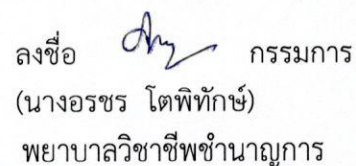 ลงชื่อ กรรมการ
(นางอรชร โตพิทักษ์)
พยาบาลวิชาชีพชำนาญการ